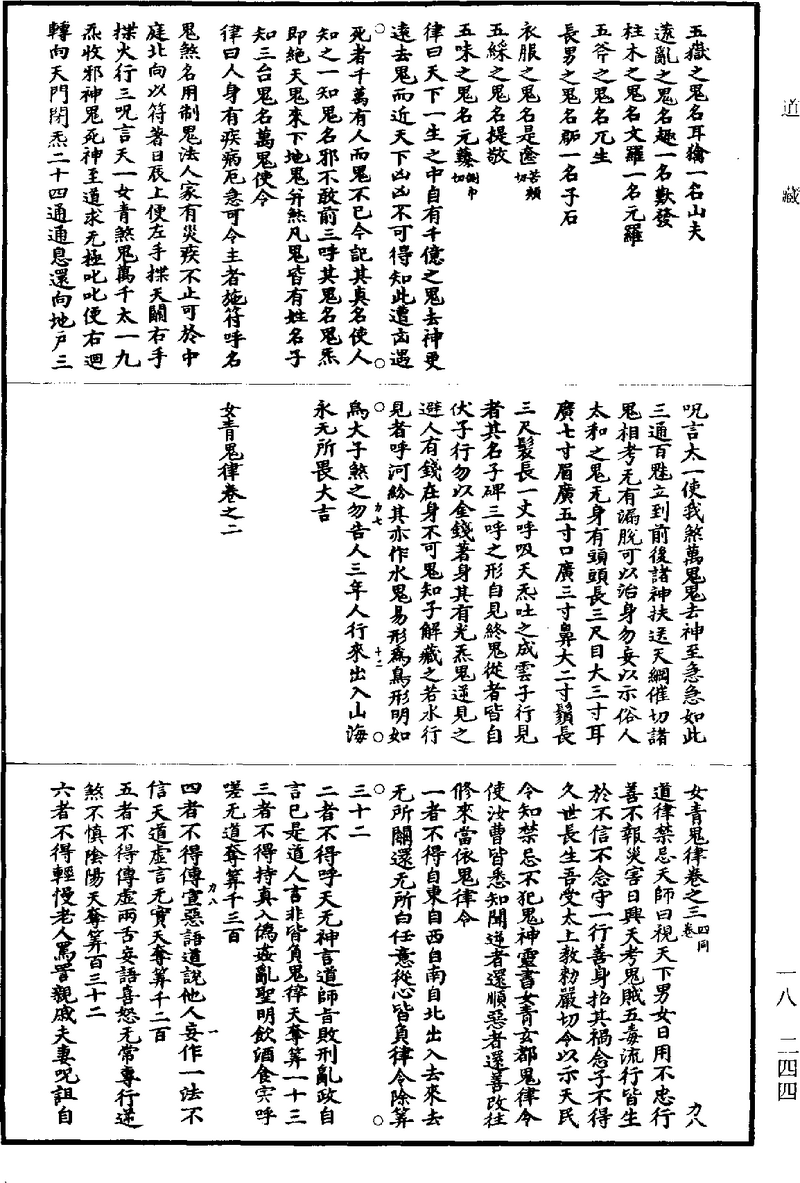 道藏
五獄之鬼名耳獪一名山夫
遂亂之鬼名趣一名歎發
柱木之鬼名文羅一名元羅
五斧之鬼名兀生
長男之鬼名郙一名子石
衣服之鬼名是㝩苦頰切
五綵之鬼名提敬
五味之鬼名元側巾切
律曰天下一生之中自有千億之鬼去神更
遠去鬼而近天下凶凶不可得知此遭凶遇
死者千萬有人而鬼不已今記其真名使人
知之一知鬼名邪不敢前三呼其鬼名鬼炁
即絕天鬼來下地鬼并煞凡鬼皆有姓名子
知三台鬼名萬鬼使令
律曰人身有疾病厄急可令主者施符呼名
鬼煞名用制鬼法人家有災疾不止可於中
庭北向以符著日辰上便左手捻天關右手
捻火行三呪言天一女青煞鬼萬千太一九
炁收邪神鬼死神至道求无極叱叱便右迴
轉向天門閉炁二十四通通息還向地戶三
呪言太一使我煞萬鬼鬼去神至急急如此
三通百魅立到前後諸神扶送天綱催切諸
鬼相考无有漏脫可以治身勿妄以示俗人
太和之鬼无身有頭頭長三尺目大三寸耳
廣七寸眉廣五寸口廣三寸鼻大二寸鬚長
三尺髮長一丈呼吸天炁吐之成雲子行見
者其名子碑三呼之形自見終鬼從者皆自
伏子行勿以金錢著身其有光炁鬼逆見之
避人有錢在身不可鬼知子解藏之若水行
見者呼河紛其亦作水鬼易形為鳥形明如
力七 十二
為大子煞之勿告人三年人行來出入山海
永无所畏大吉
女青鬼律卷之二
女青鬼律卷之三四同卷 力八
道律禁忌天師曰視天下男女日用不忠行
善不報災害日興天考鬼賊五毒流行皆生
於不信不念守一行善身招其禍念子不得
久世長生吾受太上教勅嚴切令以示天民
令知禁忌不犯鬼神靈書女青玄都鬼律令
使汝曹皆悉知聞逆者還順惡者還善改往
修來當依鬼律令
一者不得自東自西自南自北出入去來去
无所關還无所白任意從心皆負律令除筭
三十二
二者不得呼天无神言道師旨敗刑亂政自
言己是道人言非皆負鬼律天奪筭一十三
三者不得持真入偽姦亂聖明飲酒食宍呼
嗟无道奪筭千三百
力八 一
四者不得傳宣惡語道說他人妄作一法不
信天道虛言无實天奪筭千二百
五者不得傳虛兩舌妄語喜怒无常專行逆
煞不慎陰陽天奪筭百三十二
六者不得輕慢老人罵詈親戚夫妻呪詛自
一八 二四四